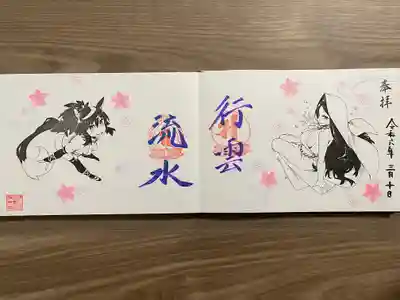 奉拝
令和六年三月十日
行雲
流水